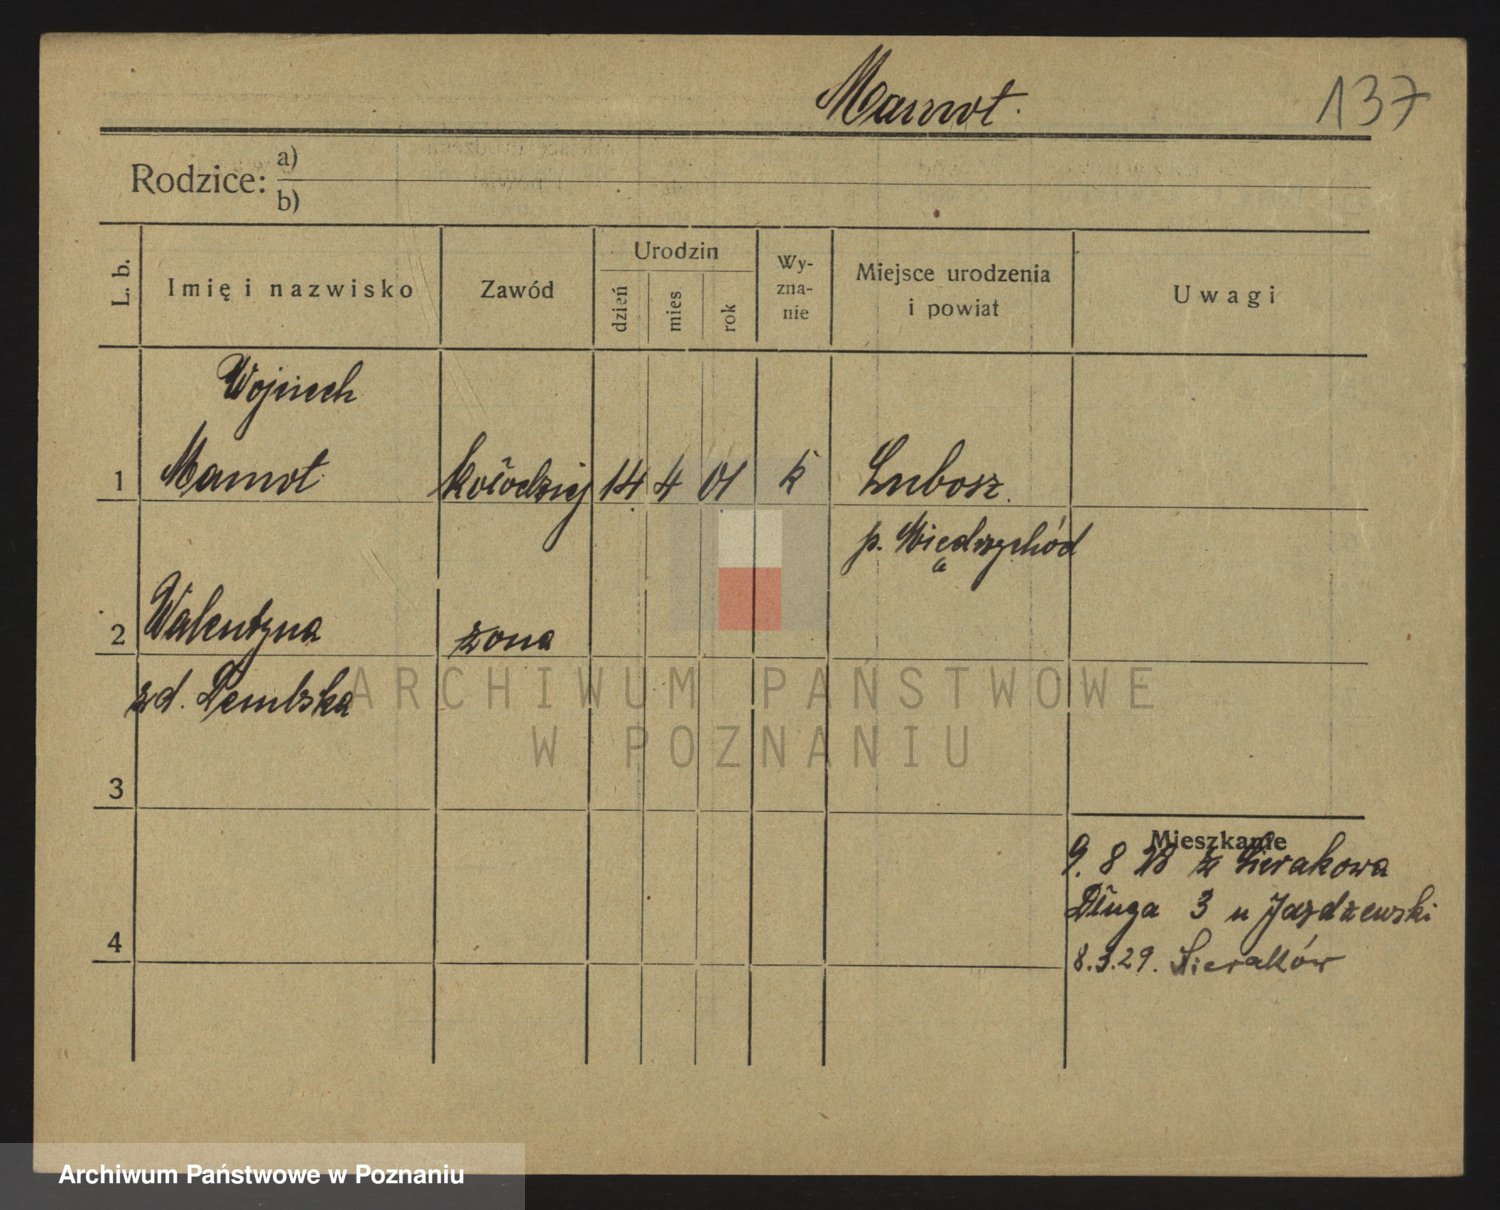 Mamot.
137
Rodzice:
a)
b)
L. b.
Imię i nazwisko
Zawód
Urodzin
dzień
mies
rok
Wy-
zna-
nie
Miejsce urodzenia
i powiat
Uwagi
Wojciech
1 Mamot kołodziej 14 4 01 k Lubosz.
p. Międzychód
2 Walentyna żona
zd.
3
Mieszkanie
9. 8 28 z Sierakowa
Długa 3 u Jazdzewski
4
8.3.29. Sieraków
ARCHIWUM PAŃSTWOWE
W POZNANIU
Archiwum Państwowe w Poznaniu